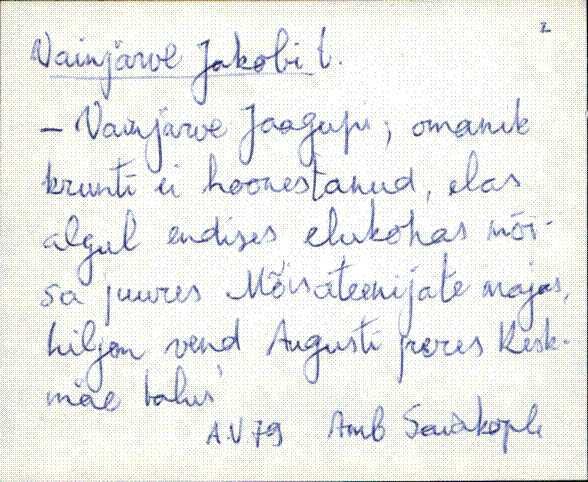 2
Vainjärve Jakobi t.
– Vainjärve Jaagupi; omanik
krunti ei hoonestanud, elas
algul endises elukohas mõi-
sa juures Mõisateenijate majas,
hiljem vend Augusti peres Kesk-
mäe talus
A.V 79 Amb